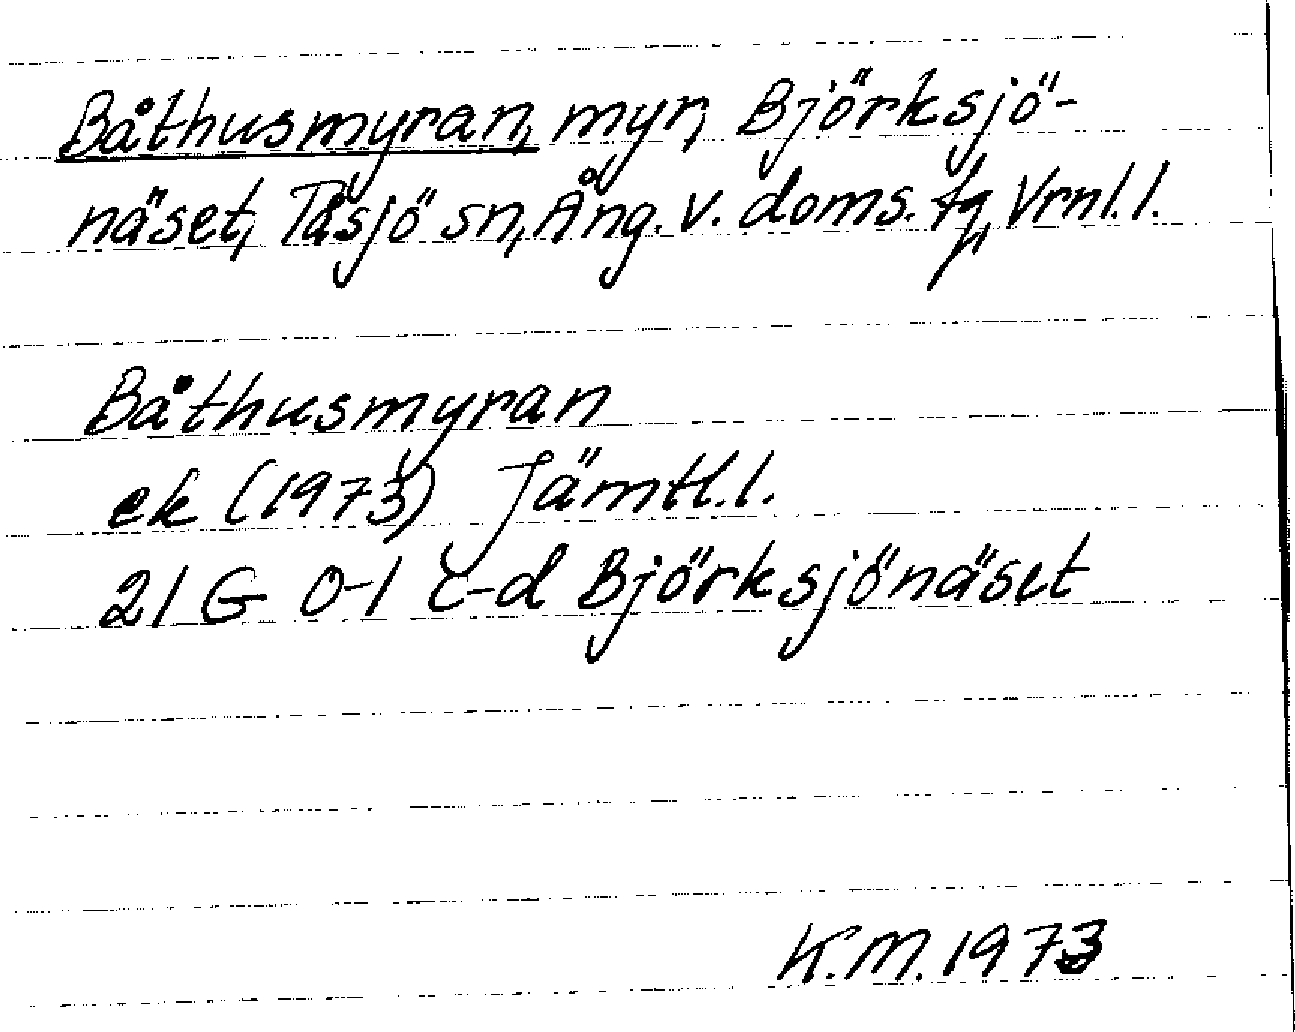 Båthusmyran, myr, Björksjö-
näset, Tåsjö sn, Ång. v. doms. tg, Vrnl. l.
Båthusmyran
ek (1973) Jämtl. l.
21 G 0-1 c-d Björksjönäset
K.M. 1973